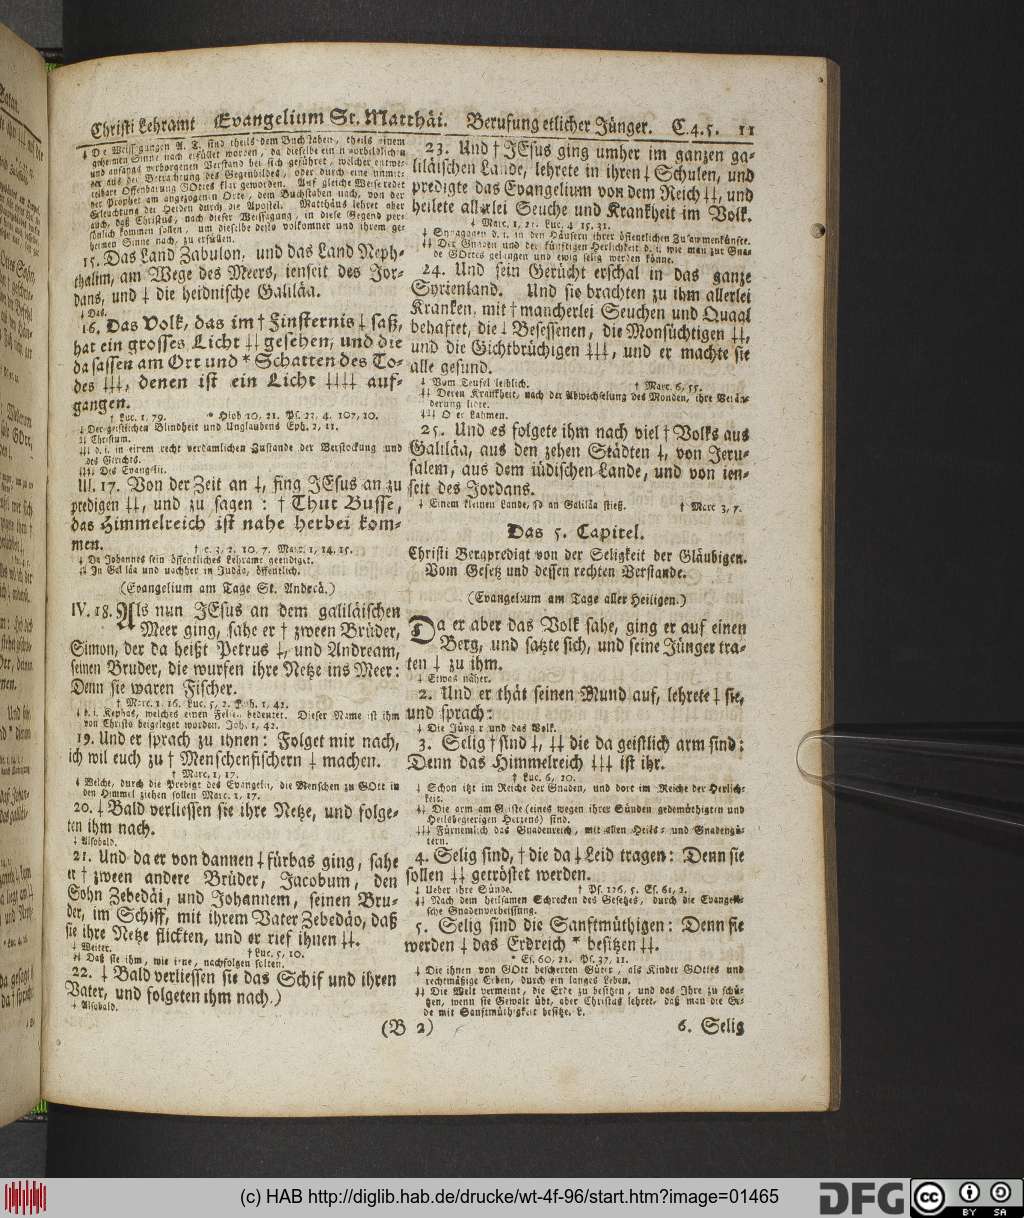 Christi Lehramt Evangelium St. Matthäi. Berufung etlicher Jünger. C. 4. 5. 11
‡ Die Weissagungen A. T. sind theils dem Buchstaben, theils einem
geheimen Sinne nach erfüllet worden, da dieselbe ein vorbildlich
und anfangs verborgenen Verstand bei sich geführet, welcher entwe-
der aus der Betrachtung des Gegenbildes, oder durch eine unmit-
telbare Offenbarung GOttes klar geworden. Auf gleiche Weise redet
der Prophet am angezogenen Orte, dem Buchstaben nach, von der
Erleuchtung der Heiden durch die Apostel. Matthäus lehret aber
auch, daß Christus, nach dieser Weissagung, in diese Gegend per-
sönlich kommen sollen, um dieselbe desto volkomner und ihrem ge-
heimen Sinne nach, zu erfüllen.
15. Das Land Zabulon, und das Land Neph-
thalim, am Wege des Meers, ienseit des Jor-
dans, und ‡ die heidnische Galiläa.
‡ Das.
16. Das Volk, das im † Finsternis ‡ saß,
hat ein grosses Licht ‡‡ gesehen; und die
da sassen am Ort und * Schatten des To-
des ‡‡‡, denen ist ein Licht ‡‡‡‡ auf-
gangen.
† Luc. 1, 79. * Hiob 10, 21. Ps. 23, 4. 107, 10.
‡ Der geistlichen Blindheit und Unglaubens Eph. 2, 11.
‡‡ Christum.
‡‡‡ d. i. in einem recht verdamlichen Zustande der Verstockung und
des Gerichts.
‡‡‡‡ Des Evangelii.
III. 17. Von der Zeit an ‡, fing JEsus an zu
predigen ‡‡, und zu sagen: † Thut Busse,
das Himmelreich ist nahe herbei kom-
men.
† c. 3, 2. 10, 7. Marc. 1, 14. 15.
‡ Da Johannes sein öffentliches Lehramt geendiget.
‡‡ In Galiläa und nachher in Judäa, öffentlich.
(Evangelium am Tage St. Andreä.)
IV. 18. Als nun JEsus an dem galiläischen
Meer ging, sahe er † zween Brüder,
Simon, der da heißt Petrus ‡, und Andream,
seinen Bruder, die wurfen ihre Netze ins Meer:
Denn sie waren Fischer.
† Marc. 1. 16. Luc. 5, 2. Joh. 1, 42.
‡ d. i. Kephas, welches einen Felsen bedeutet. Dieser Name ist ihm
von Christo beigeleget worden. Joh. 1, 42.
19. Und er sprach zu ihnen: Folget mir nach,
ich wil euch zu † Menschenfischern ‡ machen.
† Marc. 1, 17.
‡ Welche, durch die Predigt des Evangelii, die Menschen zu GOtt in
den Himmel ziehen sollen Marc. 1, 17.
20. ‡ Bald verliessen sie ihre Netze, und folge-
ten ihm nach.
‡ Alsobald.
21. Und da er von dannen ‡ fürbas ging, sahe
er † zween andere Brüder, Jacobum, den
Sohn Zebedäi, und Johannem, seinen Bru-
der, im Schiff, mit ihrem Vater Zebedäo, daß
sie ihre Netze flickten, und er rief ihnen ‡‡.
‡ Weiter. † Luc. 5, 10.
‡‡ Daß sie ihm, wie iene, nachfolgen solten.
22. ‡ Bald verliessen sie das Schif und ihren
Vater, und folgeten ihm nach.)
‡ Alsobald.
23. Und † JEsus ging umher im ganzen ga-
liläischen Lande, lehrete in ihren ‡ Schulen, und
predigte das Evangelium von dem Reich ‡‡, und
heilete allerlei Seuche und Krankheit im Volk.
† Marc. 1, 21. Luc. 4, 15. 31.
‡ Synagogen d. i. in den Häusern ihrer öffentlichen Zusammenkünfte.
‡‡ Der Gnaden und der künftigen Herlichkeit d. i. wie man zur Gna-
de GOttes gelangen und ewig selig werden könne.
24. Und sein Gerücht erschal in das ganze
Syrienland. Und sie brachten zu ihm allerlei
Kranken, mit † mancherlei Seuchen und Quaal
behaftet, die ‡ Besessenen, die Monsüchtigen ‡‡,
und die Gichtbrüchigen ‡‡‡, und er machte sie
alle gesund.
‡ Vom Teufel leiblich. † Marc. 6, 55.
‡‡ Deren Krankheit, nach der Abwechselung des Monden, ihre Verän-
derung litte.
‡‡‡ Oder Lahmen.
25. Und es folgete ihm nach viel † Volks aus
Galiläa, aus den zehen Städten ‡, von Jeru-
salem, aus dem iüdischen Lande, und von ien-
seit des Jordans.
‡ Einem kleinen Lande, so an Galiläa stieß. † Marc 3, 7.
Das 5. Capitel.
Christi Bergpredigt von der Seligkeit der Gläubigen.
Vom Gesetz und dessen rechten Verstande.
(Evangelium am Tage aller Heiligen.)
Da er aber das Volk sahe, ging er auf einen
Berg, und satzte sich, und seine Jünger tra-
ten ‡ zu ihm.
‡ Etwas näher.
2. Und er thät seinen Mund auf, lehrete ‡ sie,
und sprach:
‡ Die Jünger und das Volk.
3. Selig † sind ‡, ‡‡ die da geistlich arm sind:
Denn das Himmelreich ‡‡‡ ist ihr.
† Luc. 6, 20.
‡ Schon itzt im Reiche der Gnaden, und dort im Reiche der Herlich-
keit.
‡‡ Die arm am Geiste (eines wegen ihrer Sünden gedemüthigten und
Heilsbegierigen Herzens) sind.
‡‡‡ Fürnemlich das Gnadenreich, mit allen Heils- und Gnadengü-
tern.
4. Selig sind, † die da ‡ Leid tragen: Denn sie
sollen ‡‡ getröstet werden.
‡ Ueber ihre Sünde. † Ps. 126, 5. Es. 61, 2.
‡‡ Nach dem heilsamen Schrecken des Gesetzes, durch die Evangeli-
sche Gnadenverheissung.
5. Selig sind die Sanftmüthigen: Denn sie
werden ‡ das Erdreich * besitzen ‡‡.
* Es. 60, 21. Ps. 37, 11.
‡ Die ihnen von GOtt bescherten Güter, als Kinder GOttes und
rechtmäßige Erben, durch ein langes Leben.
‡‡ Die Welt vermeint, die Erde zu besitzen, und das Ihre zu schü-
tzen, wenn sie Gewalt übt, aber Christus lehret, daß man die Er-
de mit Sanftmüthigkeit besitze. L.
(B 2) 6. Selig
(c) HAB http://diglib.hab.de/drucke/wt-4f-96/start.htm?image=01465
DFG
cc BY SA